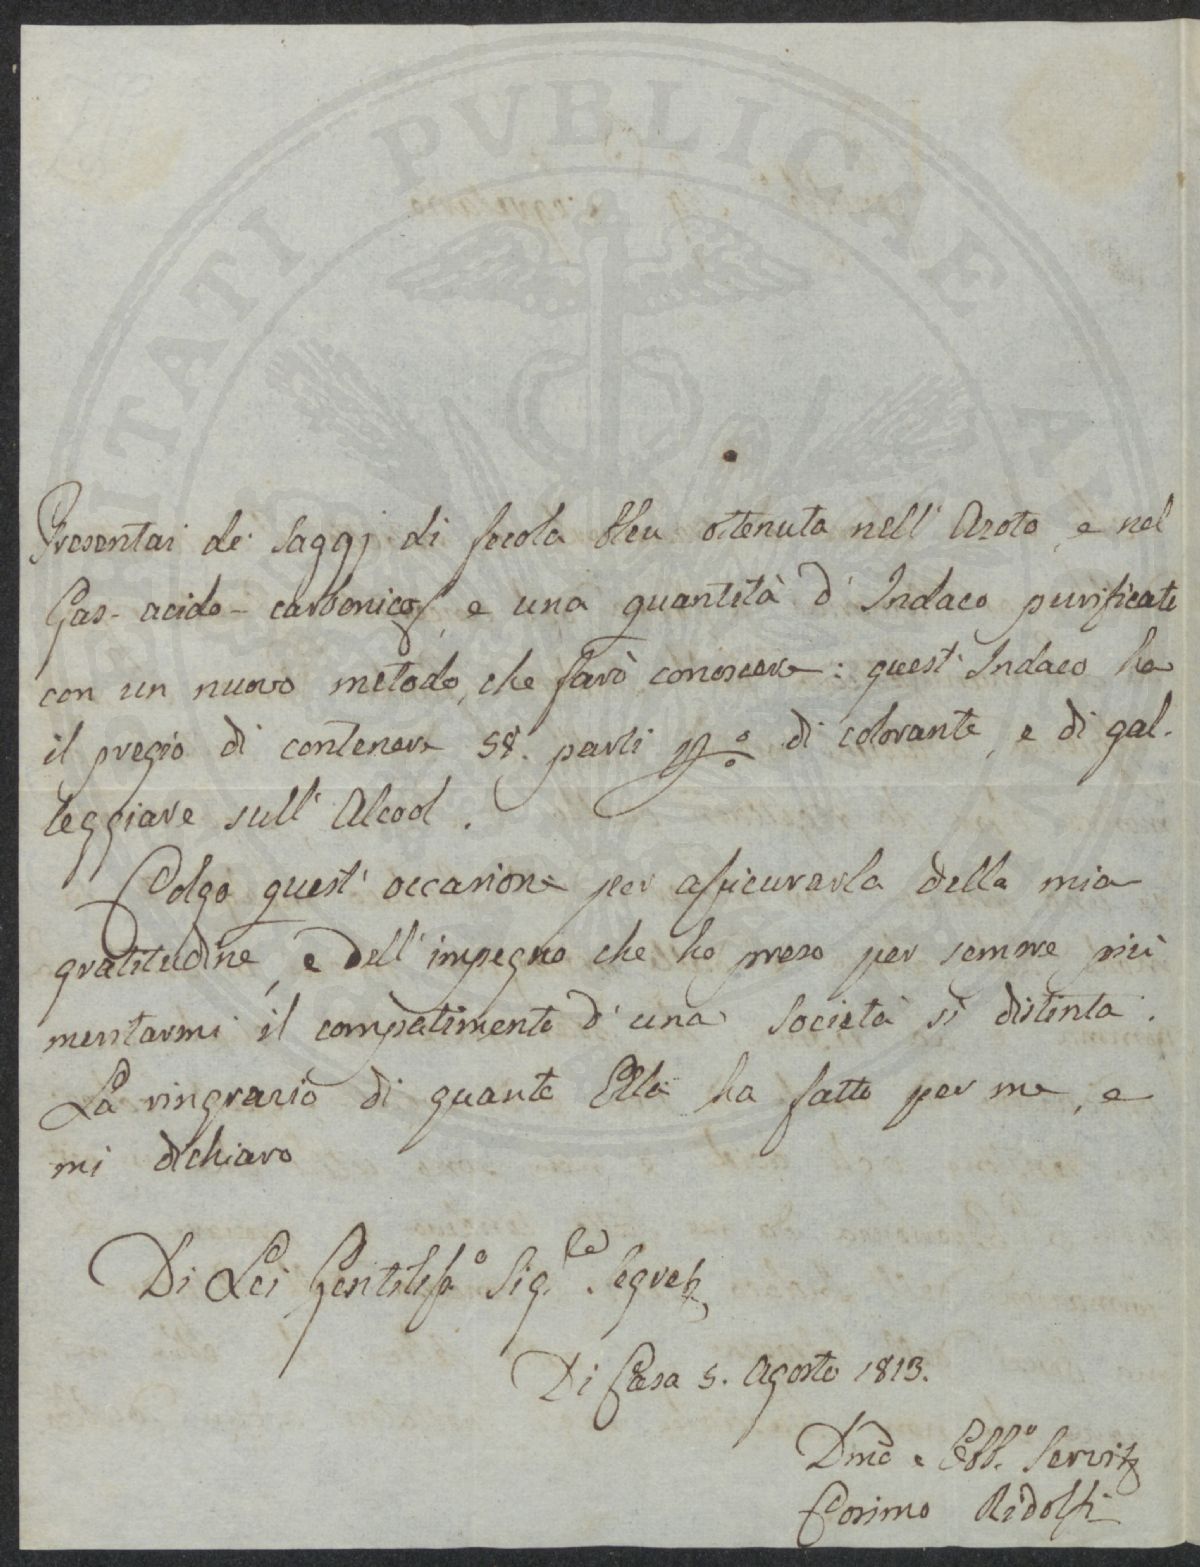 Presentai de' saggj di fecola bleu ottenuta nell' Azoto, e nel
Gas-acido-carbonico, e una quantità d' Indaco purificato
con un nuovo metodo, che farò conoscere: quest' Indaco ha
il pregio di contenere 58. parti p% di colorante, e di gal-
leggiare sull' Alcool.
Colgo quest' occasione per assicurarla della mia
gratitudine, e dell' impegno che ho preso per sempre più
meritarmi il compatimento d' una Società sì distinta.
La ringrazio di quanto Ella ha fatto per me, e
mi dichiaro
Di Lei Gentiliss.o Sig.re Segret.
Di Casa 5. Agosto 1813.
Dmo e Obb.o Servit.
Cosimo Ridolfi
ITATI PUBLICAE A